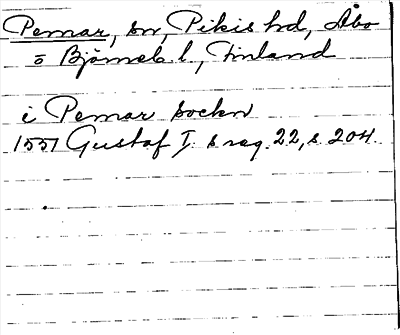 Pemar, sn, Pikis hd, Åbo
o Björneb. l., Finland
i Pemar socken
1551 Gustaf I. s reg. 22, s. 204.